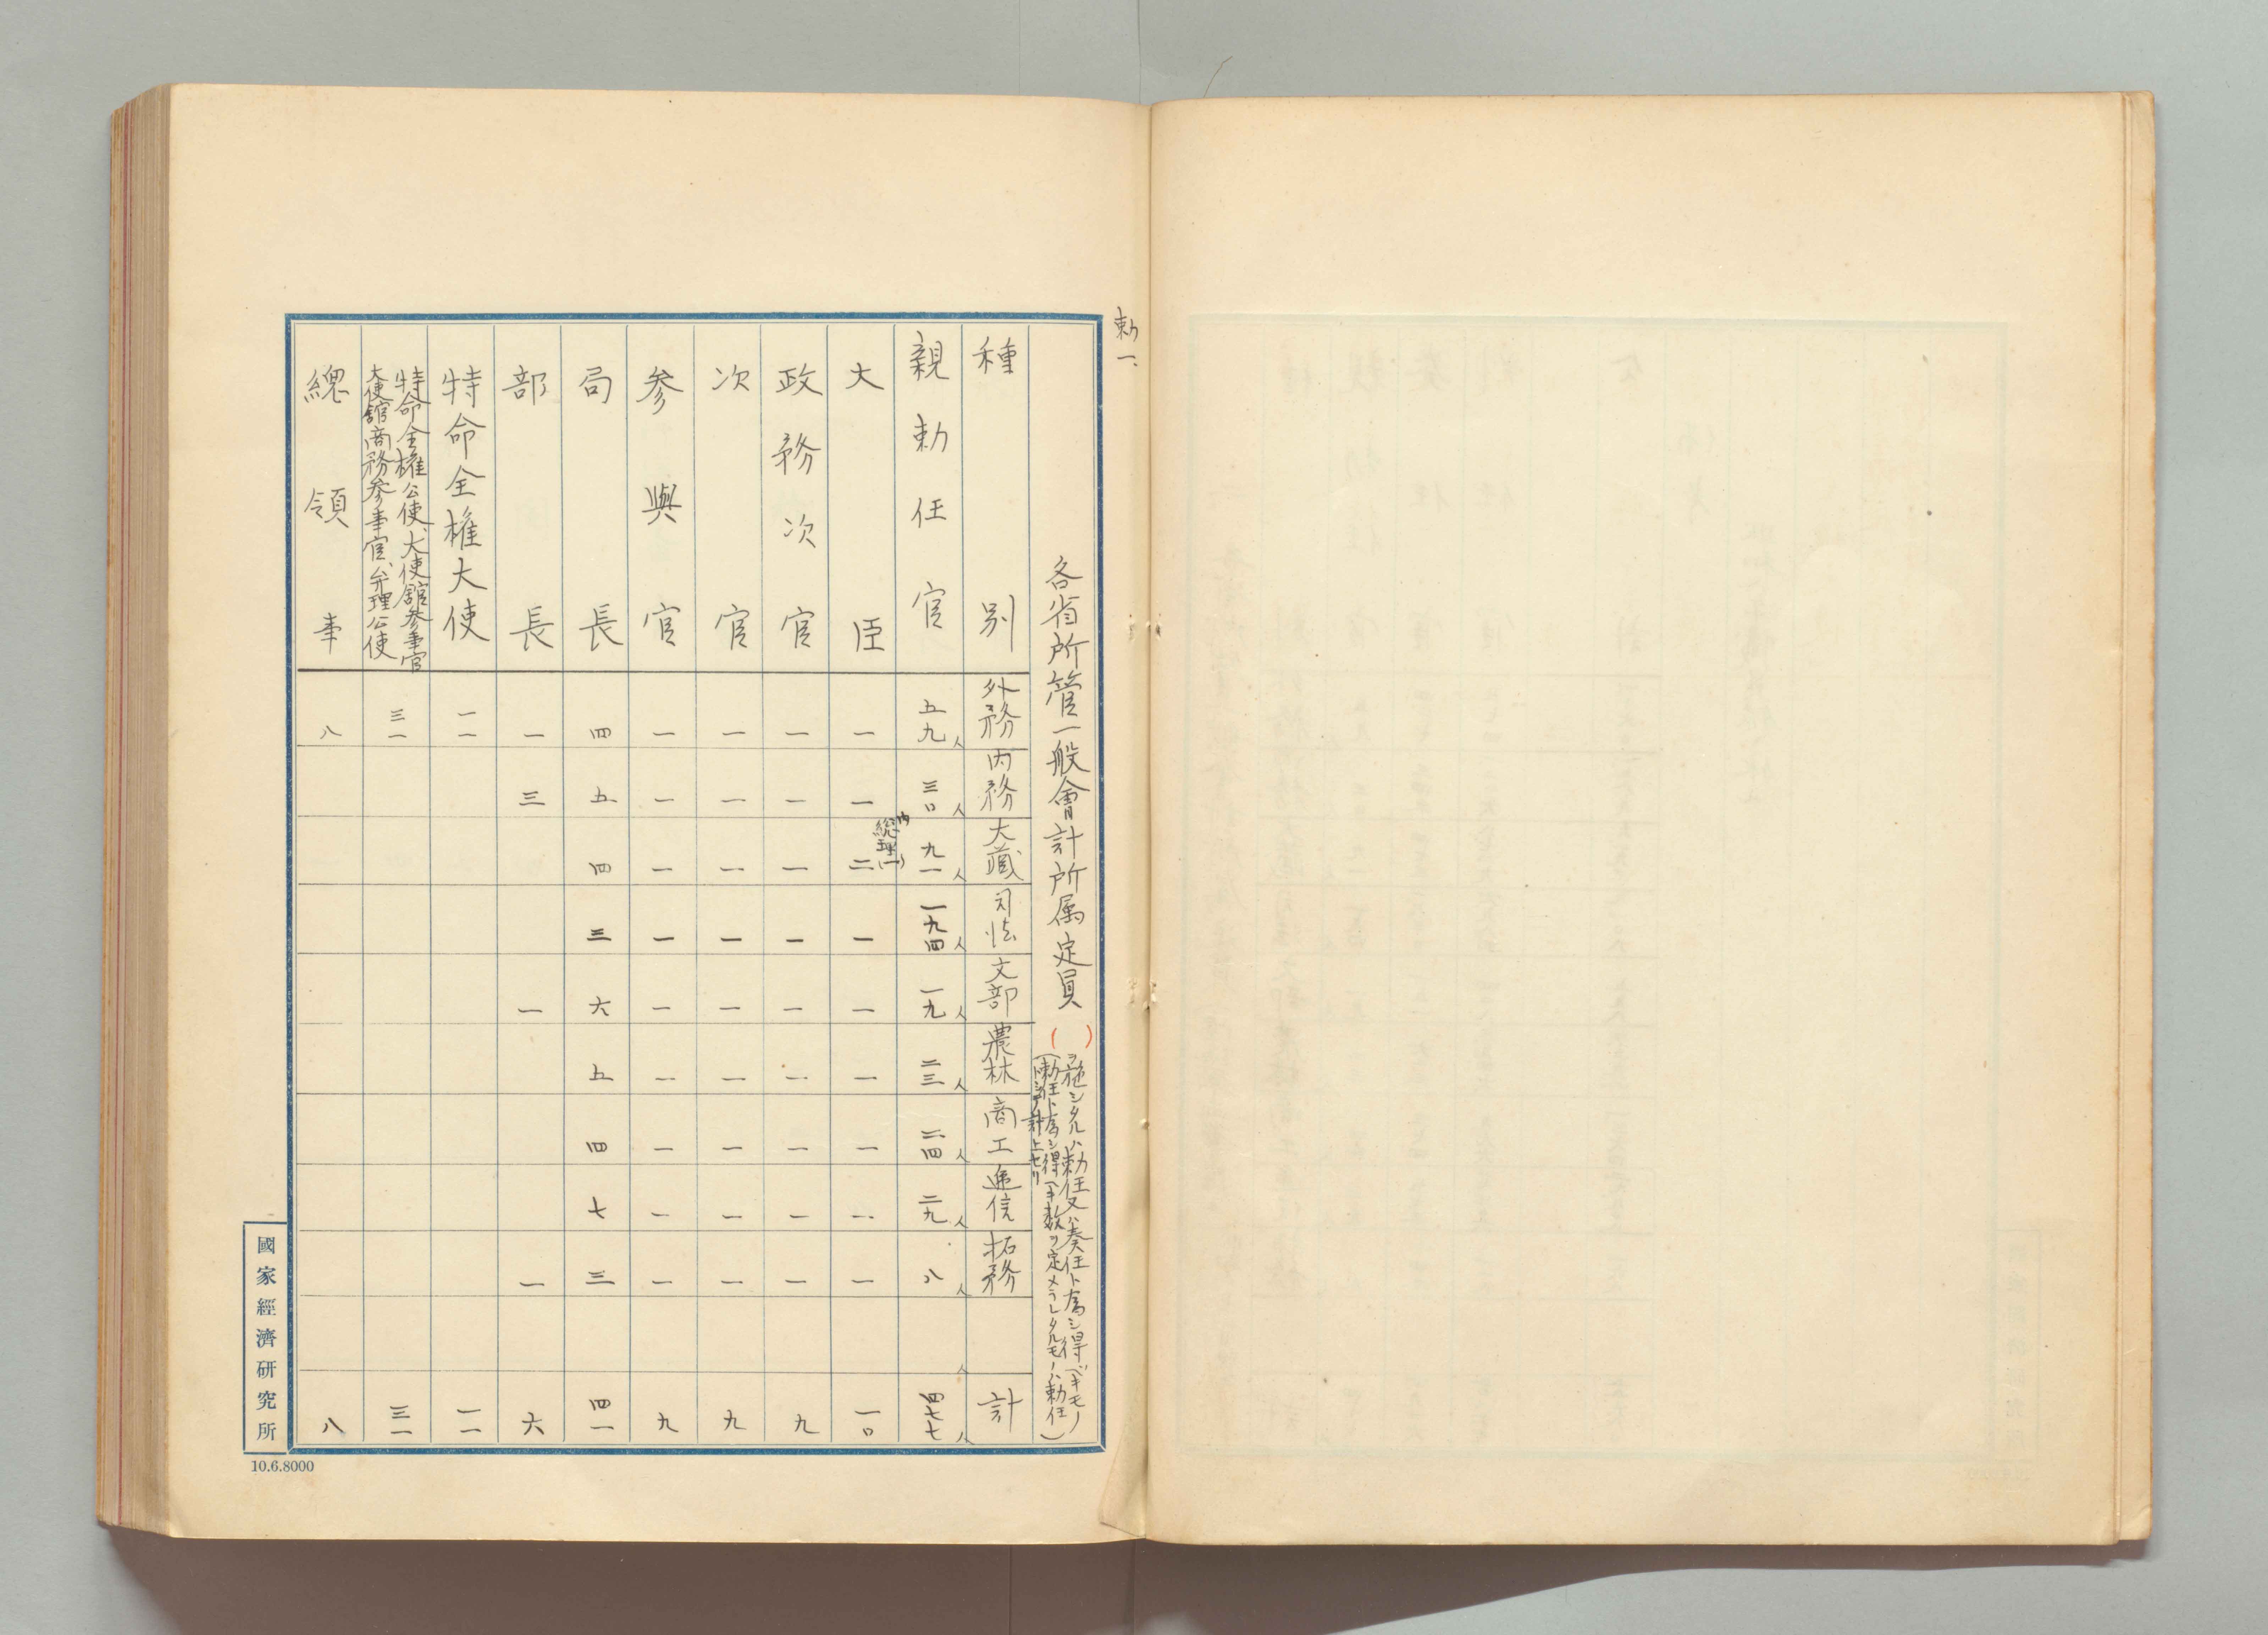 勅一、
各省所管一般會計所属定員
( )ヲ施シタルハ勅任又ハ奏任ト為シ得ベキモノ
(勅任ト為シ得ベキ数ヲ定メラレタルモノハ勅任)
トシテ計上セリ
種別 外務 内務 大藏 司法 文部 農林 商工 逓信 拓務 計
親勅任官 五九人 三〇人 九一人 一九四人 一九人 二三人 二四人 二九人 八人 人 四七七人
大臣 一 一 内総理(一)二 一 一 一 一 一 一 一〇
政務次官 一 一 一 一 一 一 一 一 一 九
次官 一 一 一 一 一 一 一 一 一 九
参與官 一 一 一 一 一 一 一 一 一 九
局長 四 五 四 三 六 五 四 七 三 四一
部長 一 三 一 一 六
特命全権大使 一一 一一
特命全権公使、大使館参事官
大使館商務参事官、弁理公使 三一 三一
總領事 八 八
國家經濟研究所
10.6.8000